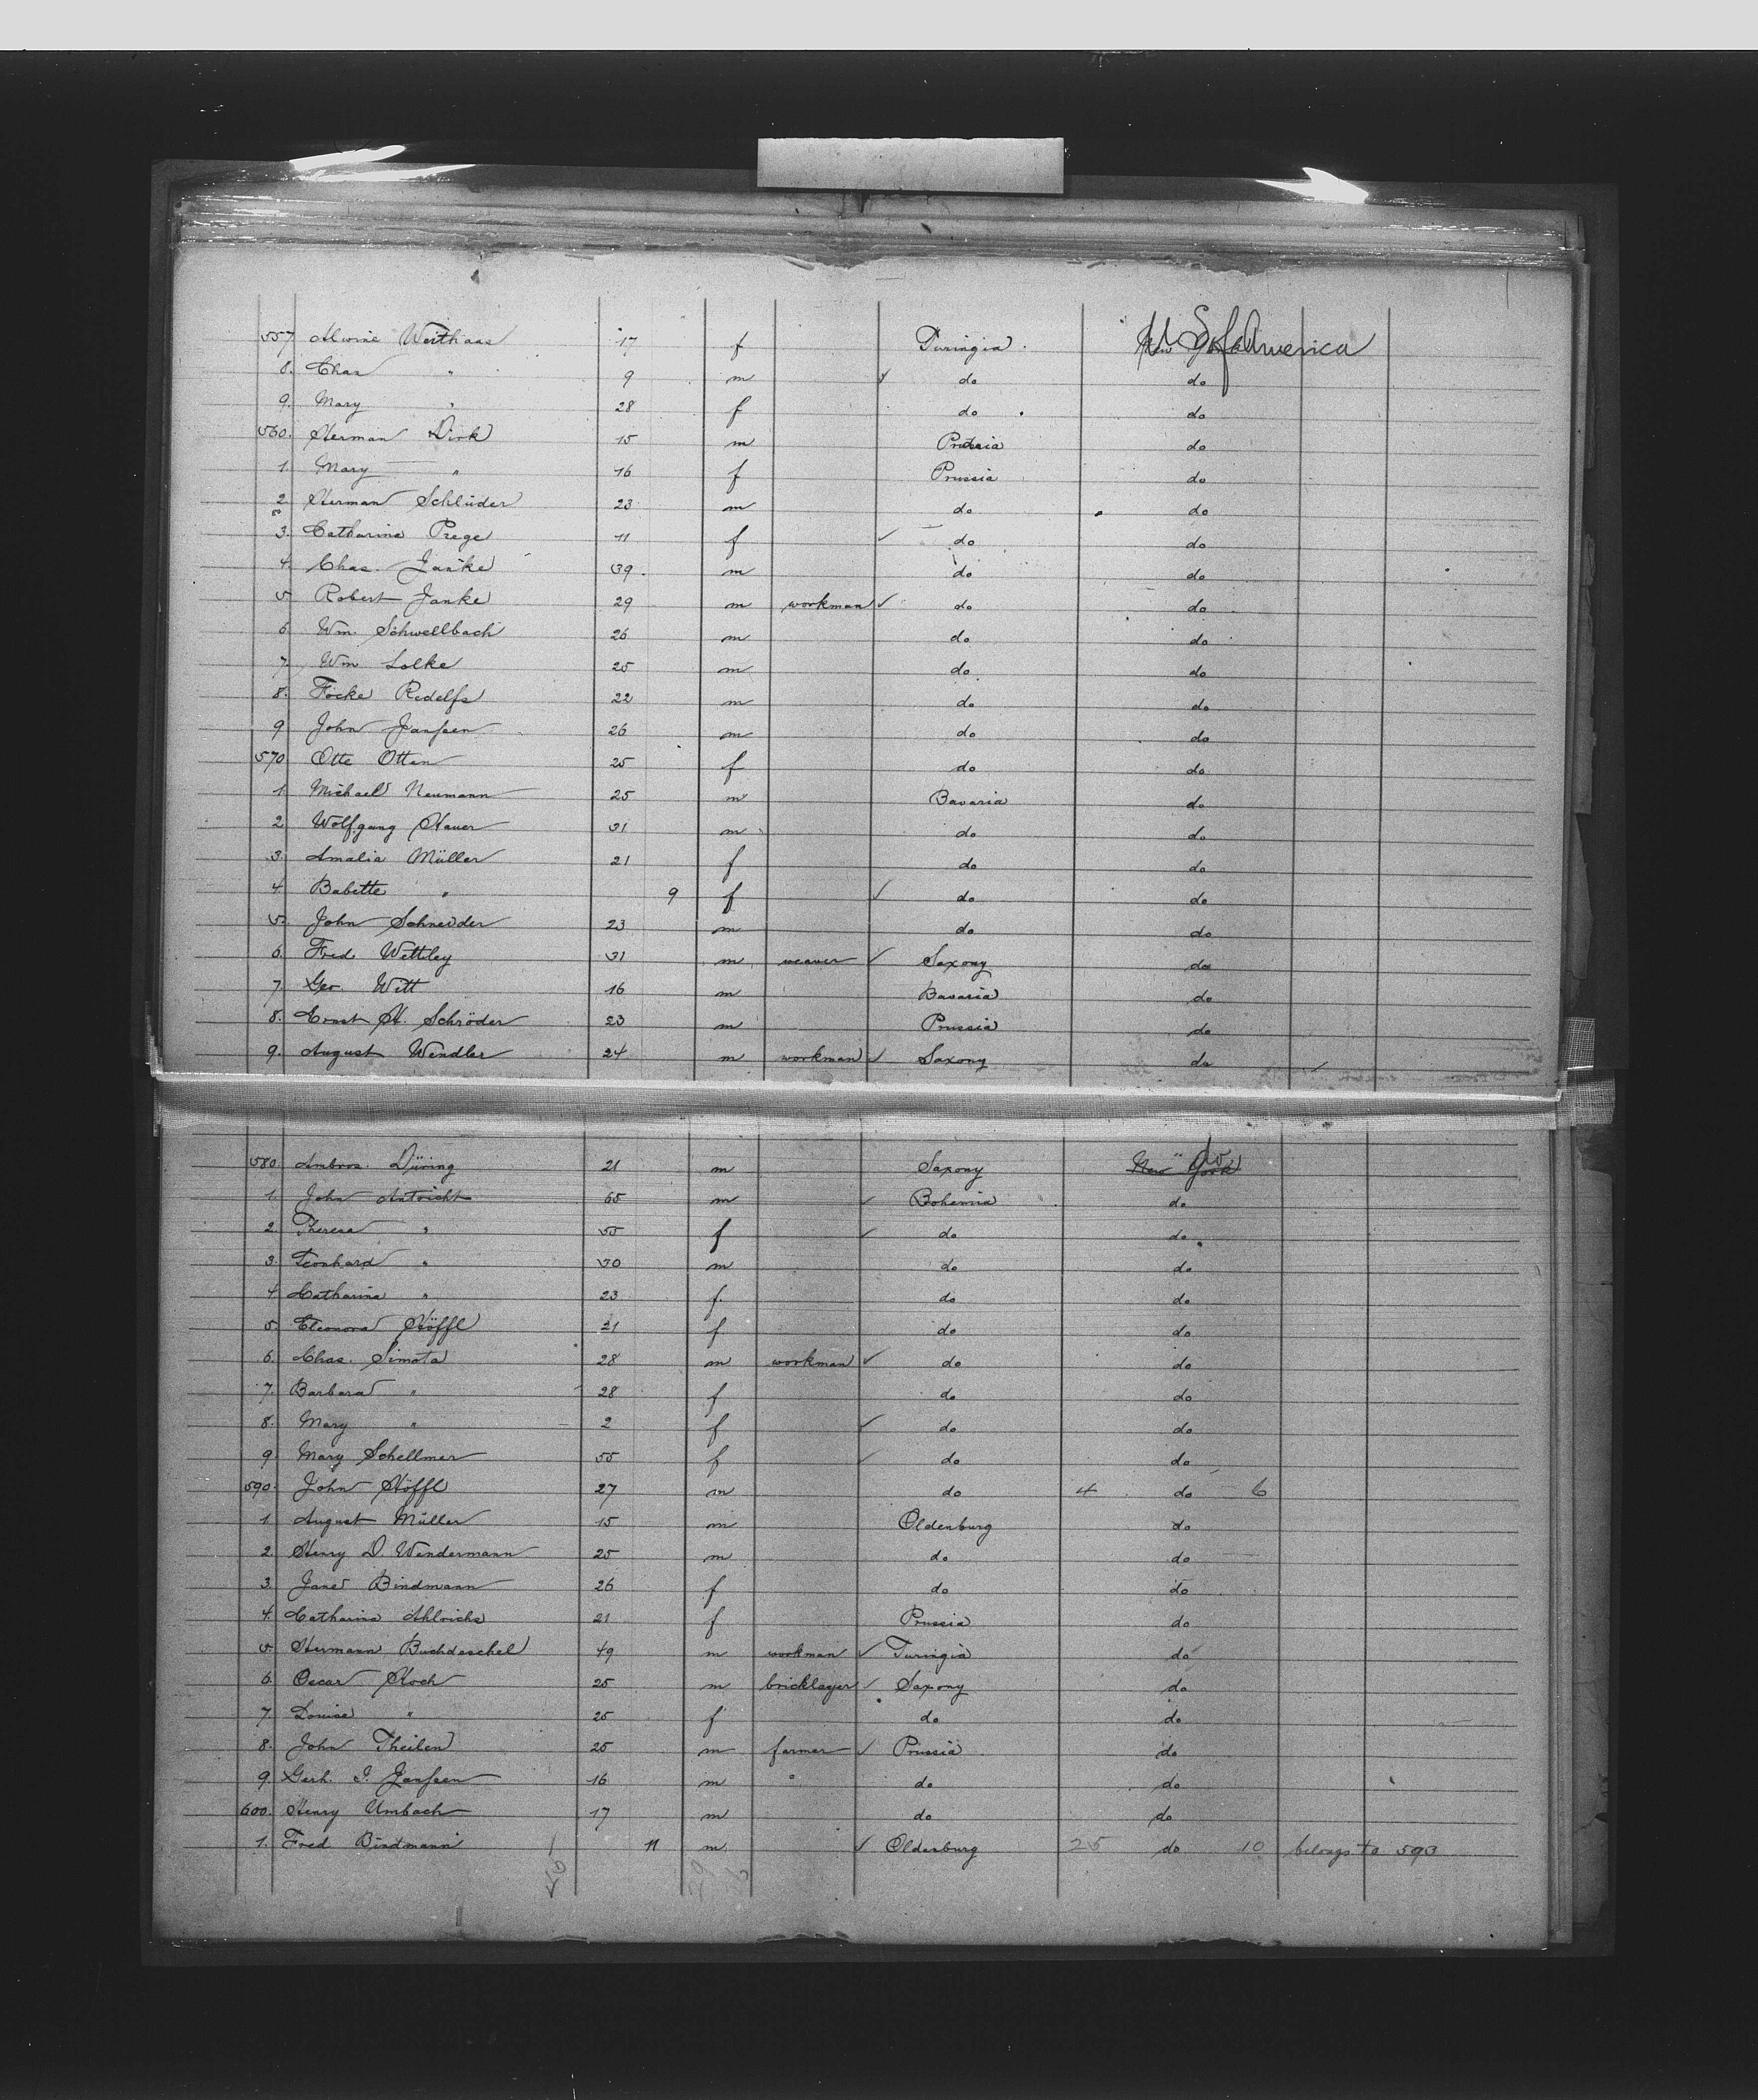 557 Alwine Weithaas 17 f Turingia. U S of America
8. Chas " 9 m ✓ do do
9. Mary " 28 f do do
560. Herman Dirk 15 m Prussia do
1. Mary " 16 f Prussia do
2. Herman Schlüder 23 m do do
3. Catharine Prege 11 f ✓ do do
4. Chas. Janke 39. m do do
5 Robert Janke 29 m workman ✓ do do
6 Wm. Schwellbach 26 m do do
7. Wm Lolke 25 m do do
8. Focke Redelfs 22 m do do
9 John Janssen 26 m do do
570 Otte Otten 25 f do do
1 Michael Neumann 25 m Bavaria do
2 Wolfgang Hauer 31 m do do
3 Amalie Müller 21 f do do
4 Babette " 9 f ✓ do do
5. John Schneider 23 m do do
6. Fred. Wettley 31 m weaver ✓ Saxony do
7. Geo. Wett 16 m Bavaria do
8. Ernst H. Schröder 23 m Prussia do
9. August Wendler 24 m workman ✓ Saxony do
580. Ambros. Düring 21 m Saxony New York do
1. John Antricht 65 m ✓ Bohemia do
2. Therese " 55 f ✓ do do
3. Leonhard " 30 m do do
4 Catharine " 23 f. do do
5. Eleonora Höffl 21 f do do
6. Chas. Simota 28 m workman ✓ do do
7. Barbara " 28 f do do
8. Mary " 2 f ✓ do do
9 Mary Schellmer 55 f ✓ do do
590. John Höffl 27 m do 4 do 6
1. August Müller 15 m Oldenburg do
2. Henry D. Wendermann 25 m do do
3. Jane Bindmann 26 f do do
4. Catharine Ahlrichs 21 f Prussia do
5. Hermann Buchdeschel 49 m workman ✓ Turingia do
6. Oscar Koch 25 m bricklayer ✓ Saxony do
7. Louise " 25 f do do
8. John Theilen 25 m farmer ✓ Prussia do
9 Gerh. I. Janssen 16 m " do do
600. Henry Umbach 17 m do do
1. Fred Bindmann 11 m ✓ Oldenburg 25 do 10 belongs to 593